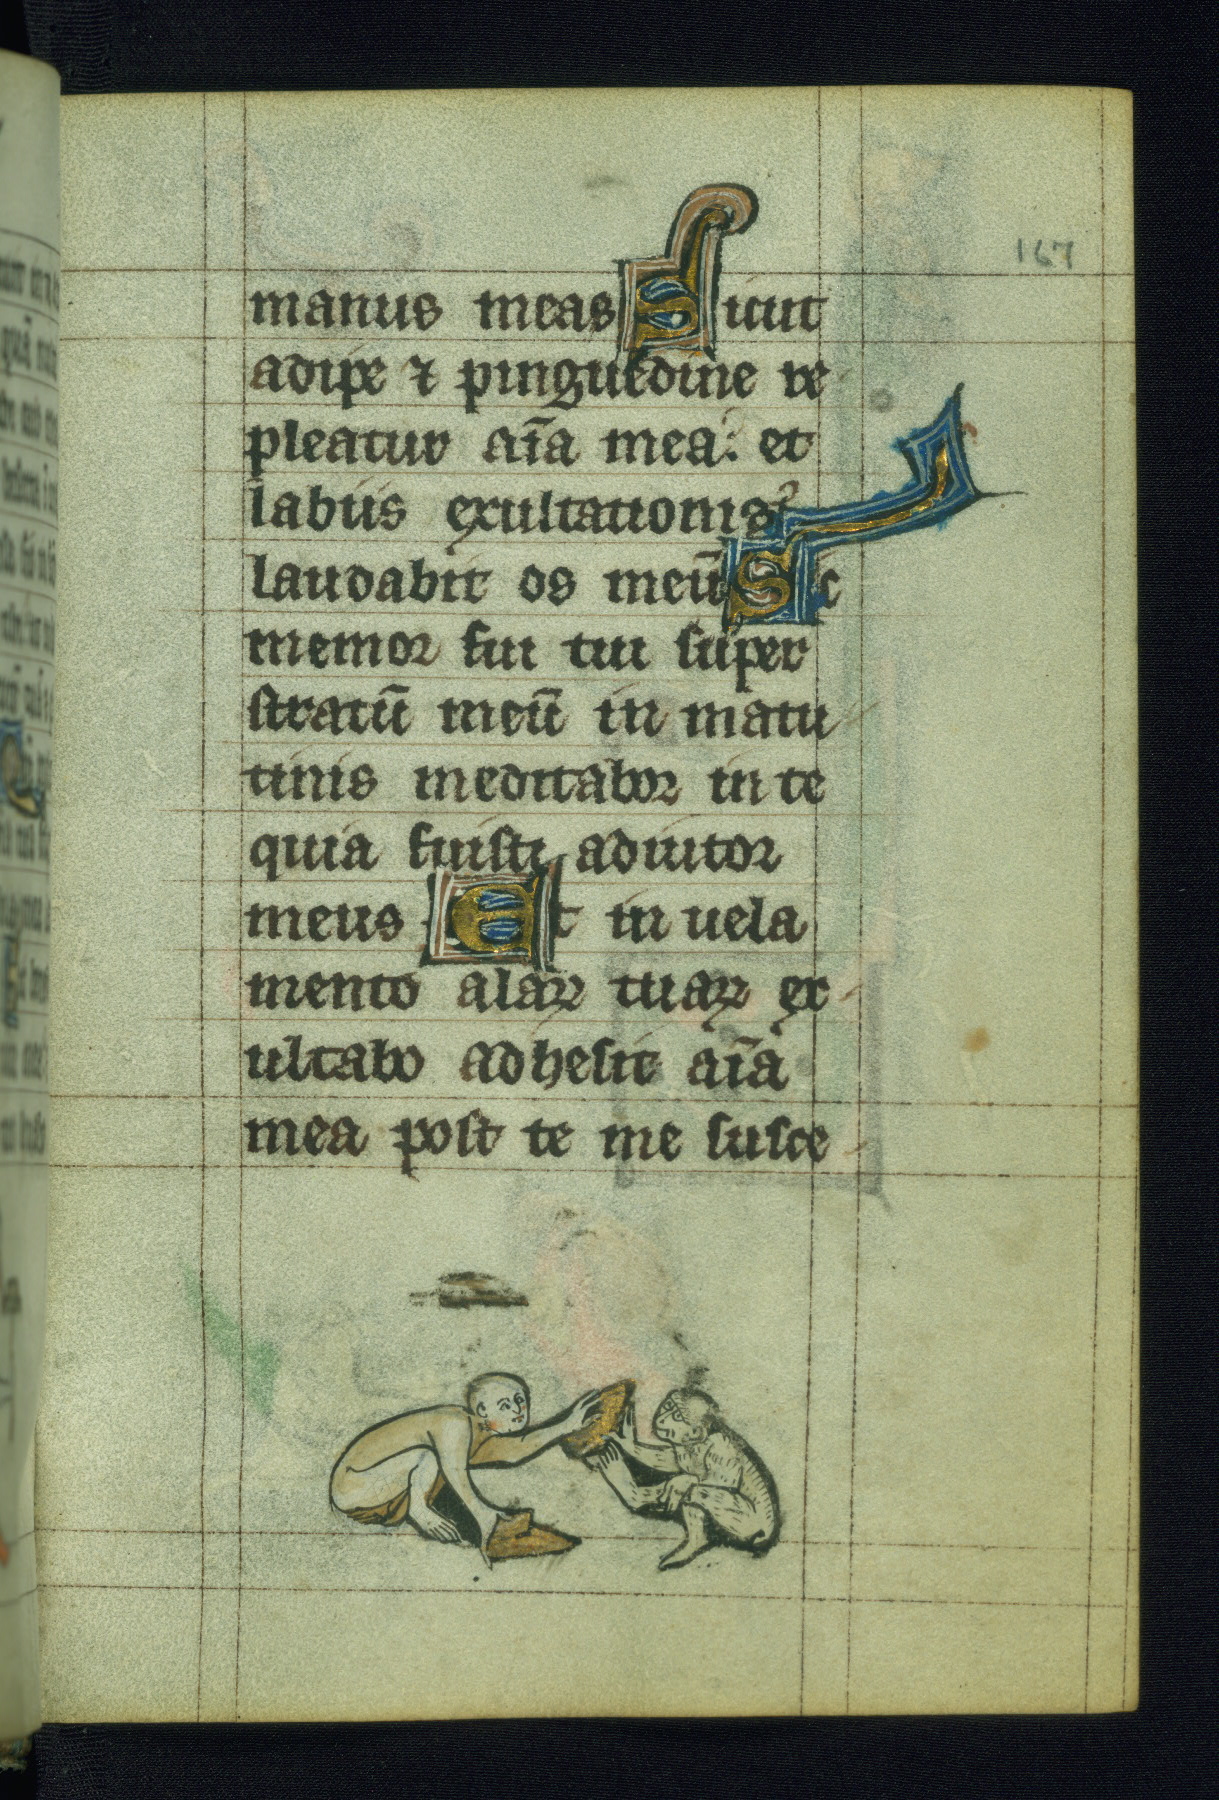 167
manus meas Sicut
adipe ⁊ pinguedine re
pleatur aīa mea: et
labiis exultationis
laudabit os meū Sic
memor fui tui super
stratū meū in matu
tinis meditabor in te
quia fuisti adiutor
meus Et in uela
mento alaꝝ tuaꝝ ex
ultabo adhesit aīa
mea post te me susce